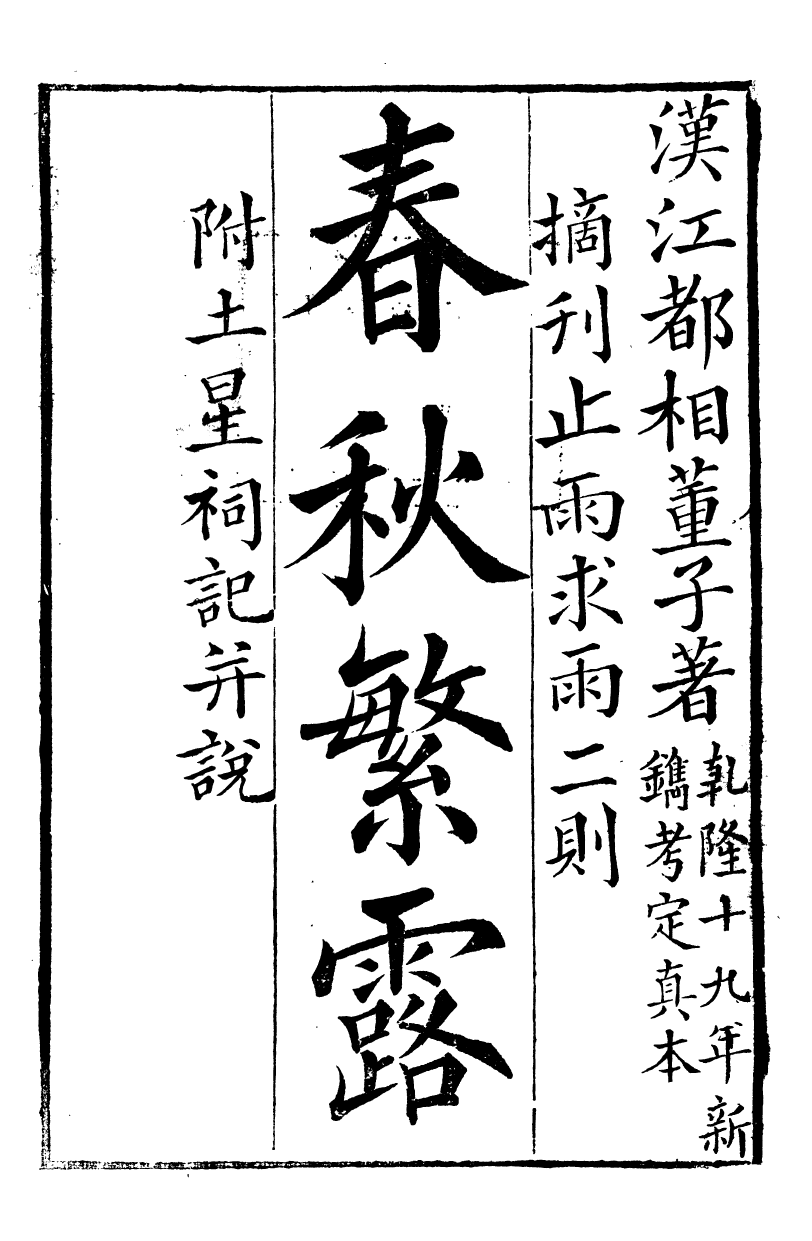 漢江都相董子著
乹隆十九年新
鐫考定真本
摘刋止雨求雨二則
春秋繁露
附土星祠記并說